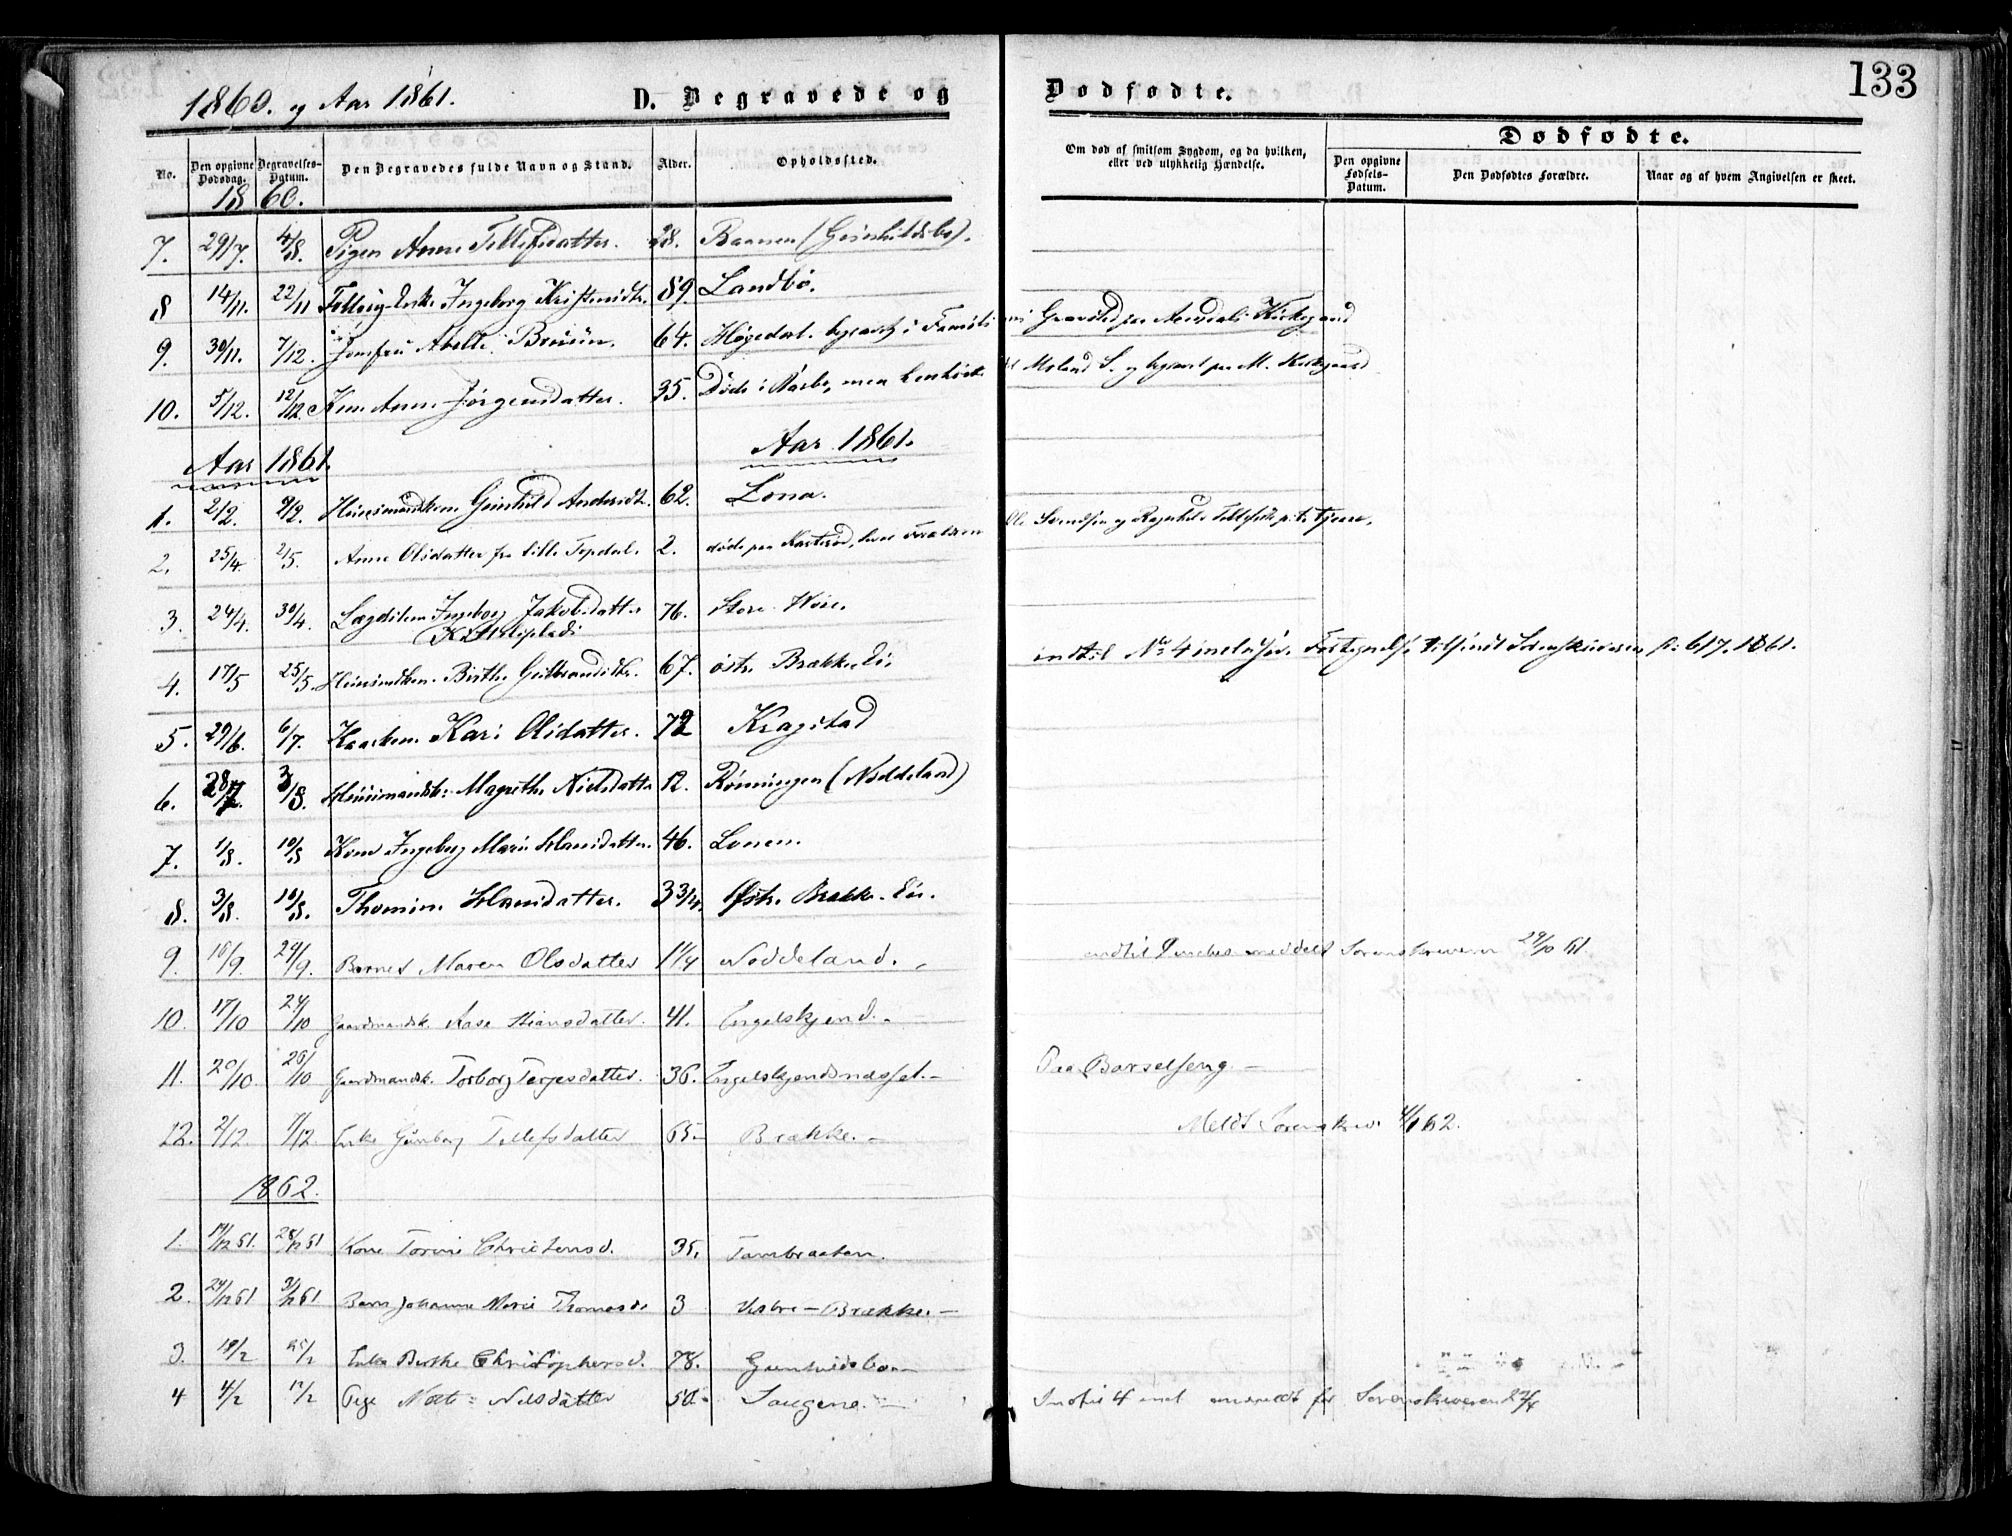 133
1860. og Aar 1861.
D. Begravede og Dødfødte.
Dødfødte.
No. Den opgivne Dødsdag. Begravelses-Datum. Den Begravedes fulde Navn og Stand. Alder. Opholdssted. Om død af smitsom Sygdom, og da hvilken, eller ved ulykkelig Hændelse. Den opgivne Fødsels-Datum. Den Dødfødtes Forældre. Naar og af hvem Angivelsen er skeet.
1860.
7. 29/7. 4/8. Pigen Anne Tellefsdatter. 28. Baanen (Gunhildsbo).
8 14/11. 22/11 Enke Ingeborg Kristensdtr. 89. Landbø.
9. 30/11. 7/12. Jomfru Abelle Bruun. 64. Høgedal. begravet i Familiens Gravsted paa Arendals Kirkegaard
10. 5/12. 12/12. Kone Anne Jørgensdatter. 35. Døde i Barbo, men henhørte til Moland S. og begravet paa M. Kirkegaard
Aar 1861. Aar 1861.
1. 2/2. 9/2. Huusmandskone Gunhild Andersdtr. 62. Lona.
2. 25/4. 2/5. Anne Olsdatter fra lille Topdal. 2. døde paa hvor Forældrene Ole Svendsen og Ragnhild Tellefsdtr tjene.
3. 24/4. 30/4. Lægdslem Ingeborg Jakobsdatter 76. Store
4. 17/5 25/5. Huusmdkone Birthe Gulbrandsdtr. 67. østre Brække Eie. indtil No 4 inclusive Fortegnelse tilsendt Sorenskriveren 6/7. 1861.
5. 29/6. 6/7. Kaarkone Kari Olsdatter. 72 Kragstad
6. 28/7. 3/8. Huusmandsk: Magrethe Nielsdatter 12. Rønningen (Nøddeland)
7. 1/8. 10/8 Kone Ingeborg Marie Hansdatter. 46. Lonen.
8. 3/8. 10/8. Thomine Hansdatter. 3 3/4. Østre Brække Eie.
9. 18/9. 24/9. Barnet Maren Olsdatter 1 1/4 Nøddeland. indtil 9 incl. meddelt Sorenskriveren 29/10 61.
10. 17/10 24/10 Gaardmandsk. Aase Hansdatter. 41. Engelskjend.
11. 20/10. 26/10 Gaardmandsk. Torborg Terjesdatter. 36. Engelskjendsnæsset. Paa Barselseng
12. 2/12 7/12. Enke Gunborg Tellefsdatter 65 Brække. Meldt Sorenskriv. 4/1 62.
1862.
1. 19/12 61. 28/12 61 Kone Torine Christensd. 35. Tambraaten.
2. 24/12 61 31/12 61 Barn Johanne Marie Thomasd. 3 Østre Brække.
3. 18/2 25/2 Enke Berthe Christophersd. 78. Gunhildsbo
4 4/2 12/2 Pige Nilsdatter 50. Saugene. Indtil 4 incl anmeldt for Sorenskriveren